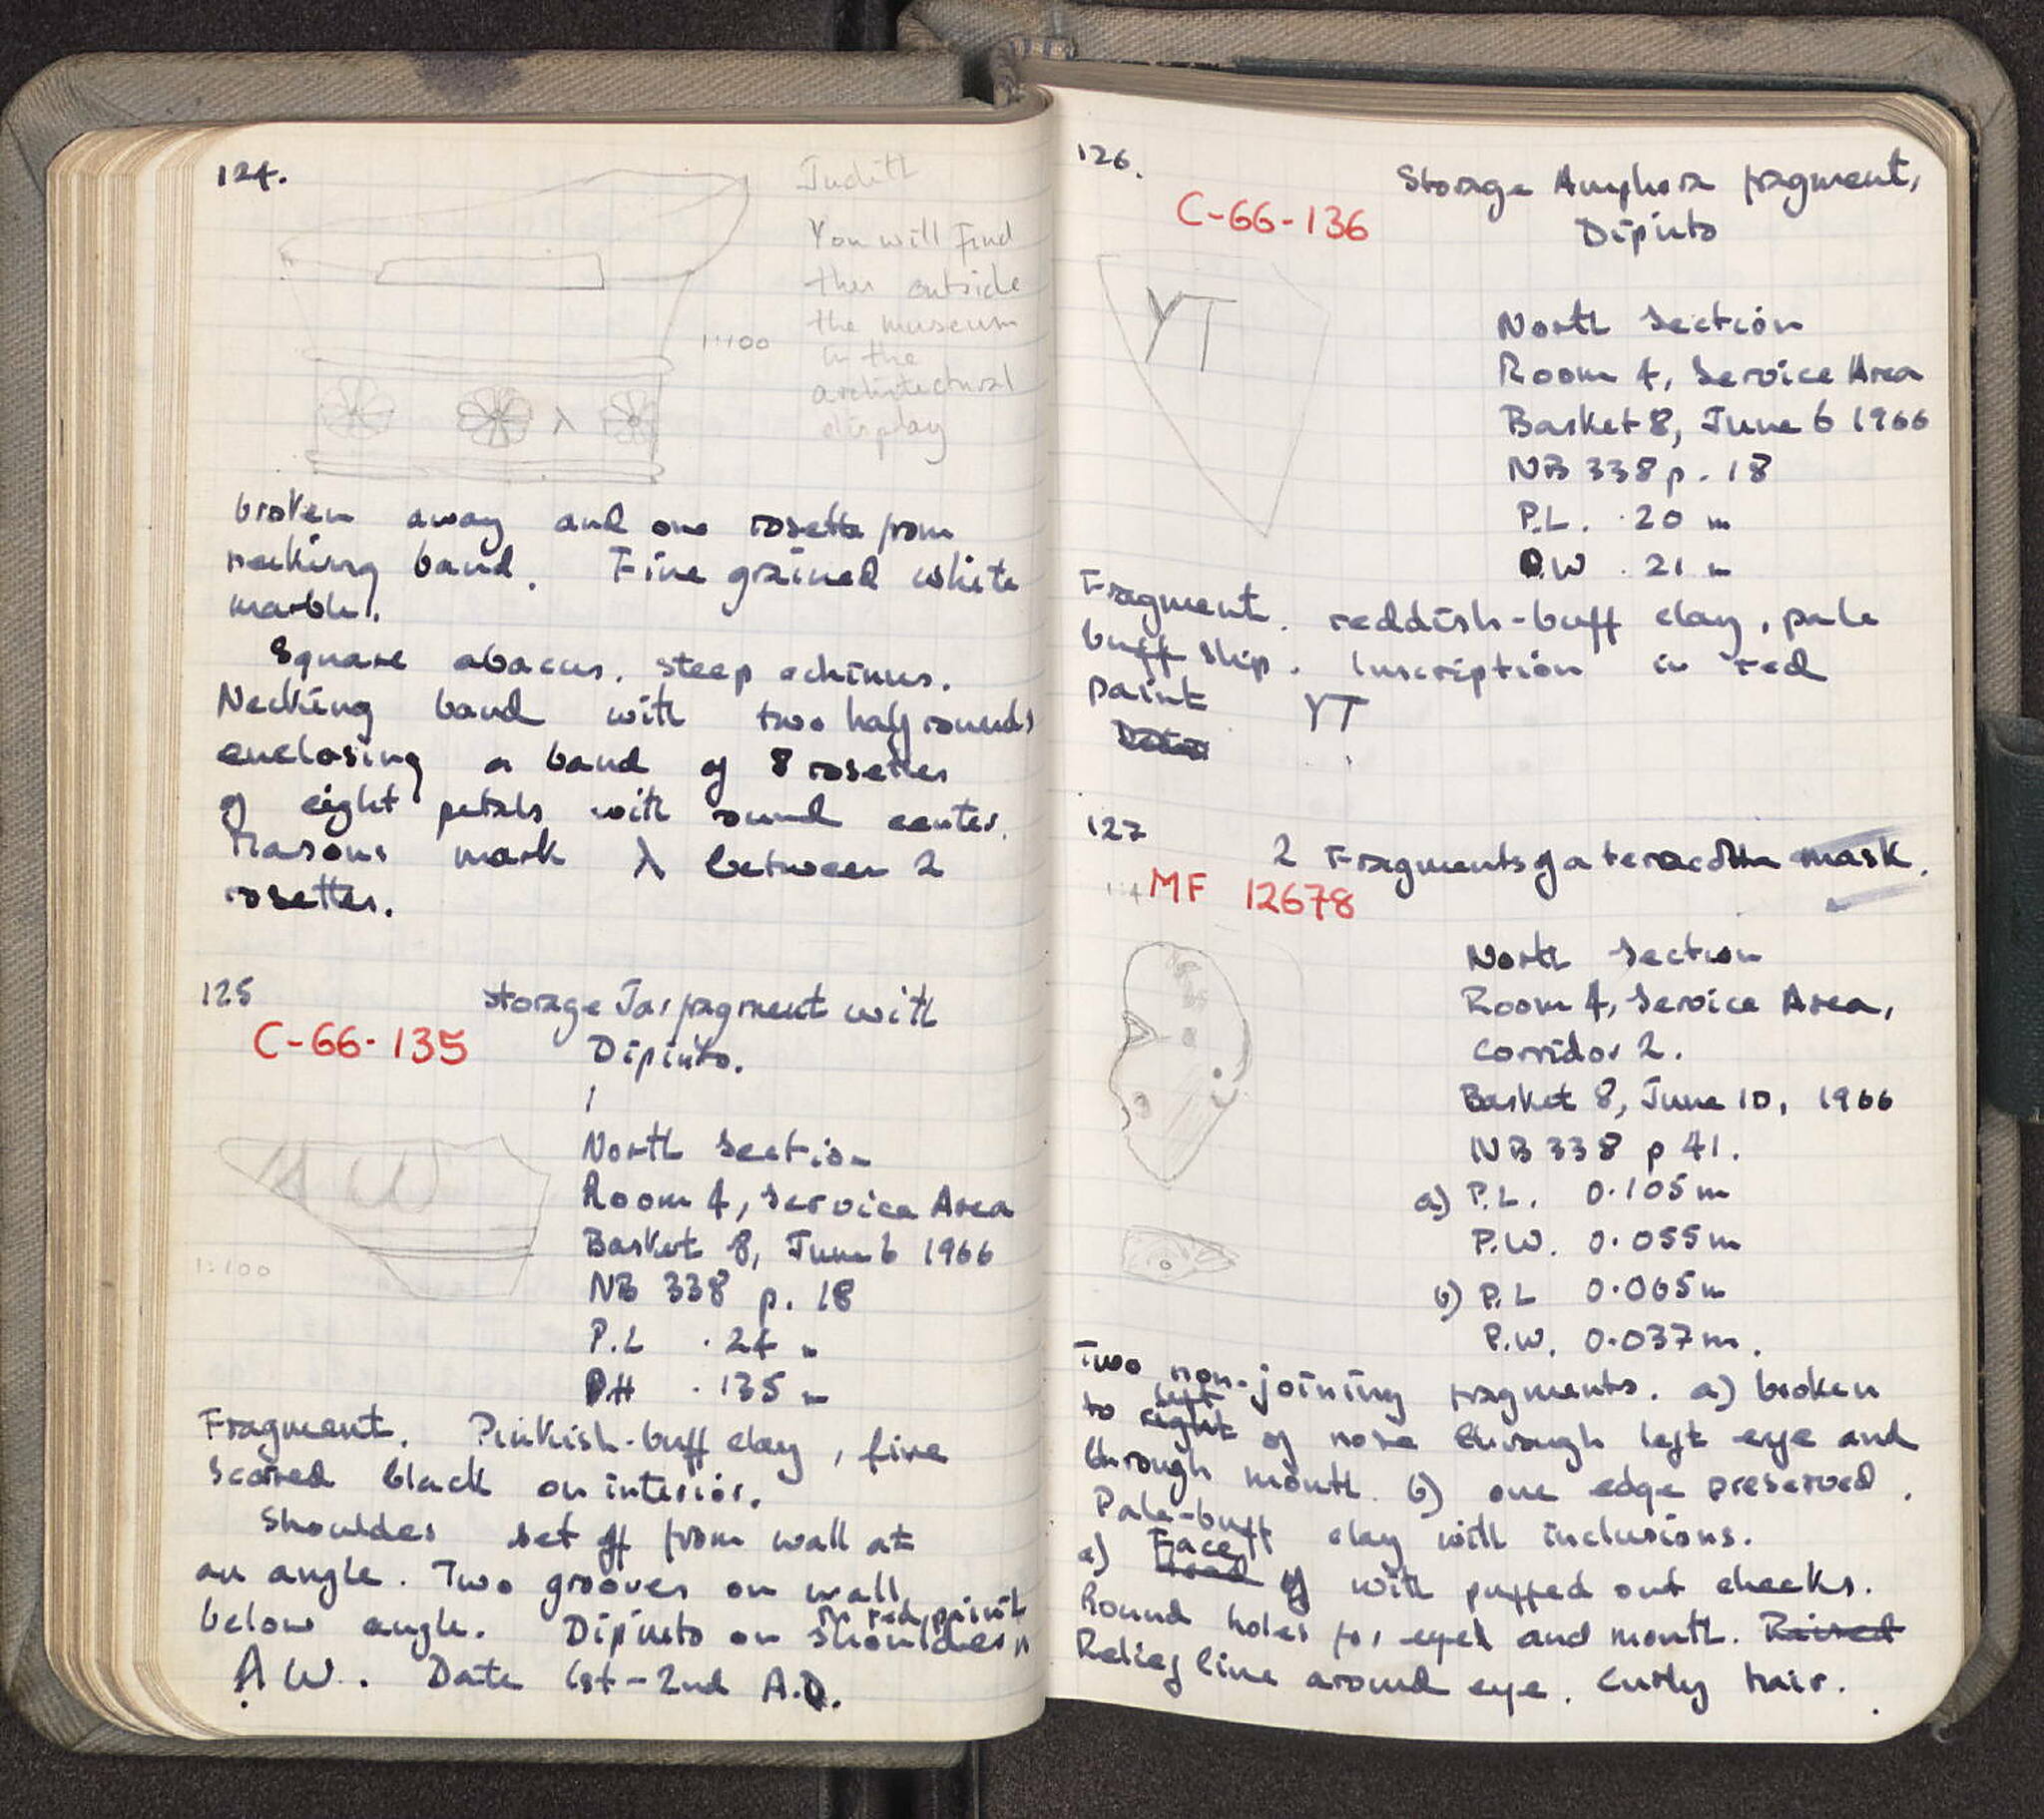 124.
Judith
You will find
this outside
the museum
in the
architectural
display
1:100
λ
broken away and one rosette from
necking band. Fine grained white
marble.
Square abacus. steep echinus.
Necking band with two half rounds
enclosing a band of 8 rosettes
of eight petals with round center.
Masons mark λ between 2
rosettes.
125
Storage Jar fragment with
C-66-135
Dipinto.
North Section
Room 4, Service Area
Basket 8, June 6 1966
1:100
NB 338 p. 18
P.L .24 m
PH .135 m
Fragment. Pinkish-buff clay, fine
scored black on interior.
Shoulder set off from wall at
an angle. Two grooves on wall
below angle. Dipinto on shoulder in
in red paint
A W. Date 1st-2nd A.D.
126.
Storage Amphora fragment,
C-66-136
Dipinto
YT
North Section
Room 4, Service Area
Basket 8, June 6 1966
NB 338 p. 18
P.L. .20 m
P.W .21 m
Fragment. reddish-buff clay, pale
buff slip. Inscription in red
paint YT
127
2 Fragments of a teracotta mask.
1:4
MF 12678
North Section
Room 4, Service Area,
Corridor 2.
Basket 8, June 10, 1966
NB 338 p 41.
a) P.L. 0.105m
P.W. 0.055m
b) P.L 0.065m
P.W. 0.037m.
Two non-joining fragments. a) broken
left
to right of nose through left eye and
through mouth. b) one edge preserved.
Pale-buff clay with inclusions.
Face
a) Head of with puffed out cheeks.
Round holes for eyes and mouth. Raised
Relief line around eye. Curly hair.